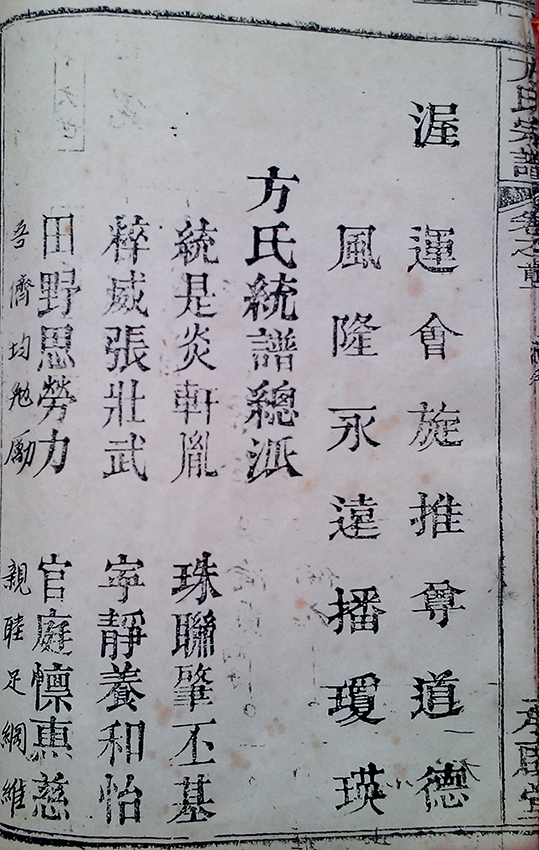 方氏宗譜
卷之首
渥運會旋推尊道德
風隆永遠播瓊瑛
方氏統譜總派
統是炎軒胤 珠聯肇丕基
粹威張壯武 寜靜養和怡
田野思勞力 官庭懍惠慈
吾儕均勉勵 親睦足綱維